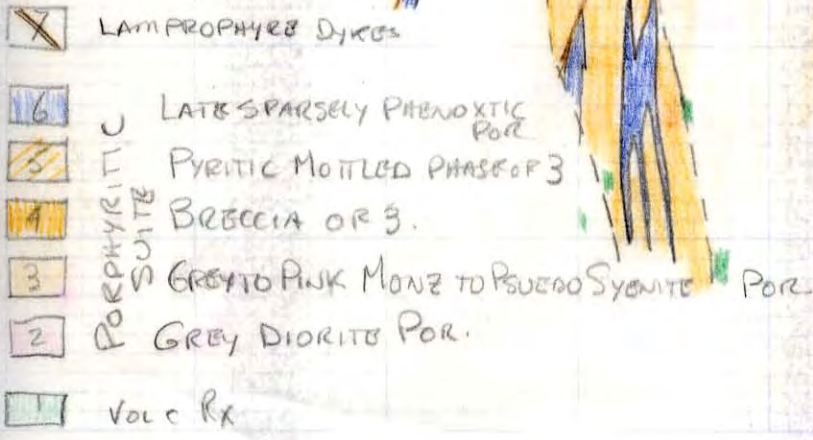 7 LAMPROPHYRE DYKES
6 LATE SPARSELY PHENOXTIC POR
5 PYRITIC MOTTLED PHASE OF 3
4 BRECCIA OR 3.
3 GREY TO PINK MONZ TO PSUEDO SYENITE POR.
2 GREY DIORITE POR.
1 VOLC RX
PORPHYRITIC
SUITE